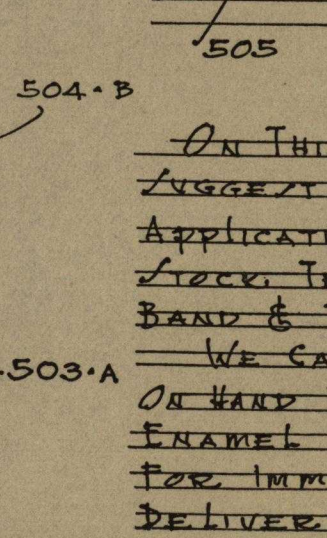 505
504·B
On Thi
Suggest
Applicati
Stock. T
Band &
We Ca
503·A
On Hand
Enamel
For Imm
Deliver